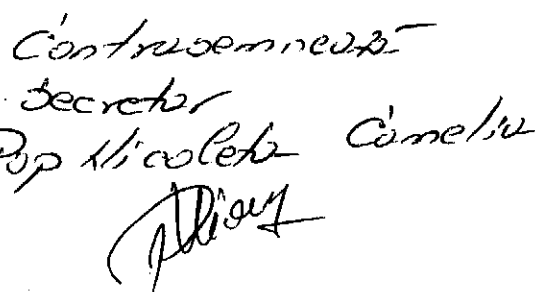 Contrasemnează
Secretar
Pop Nicoleta Camelia